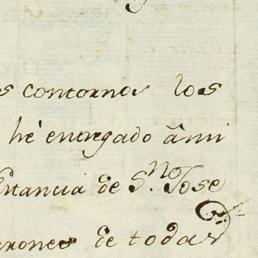 s contornos los
he entregado â mi
Estancia de S.ⁿ Jose
rones de todas